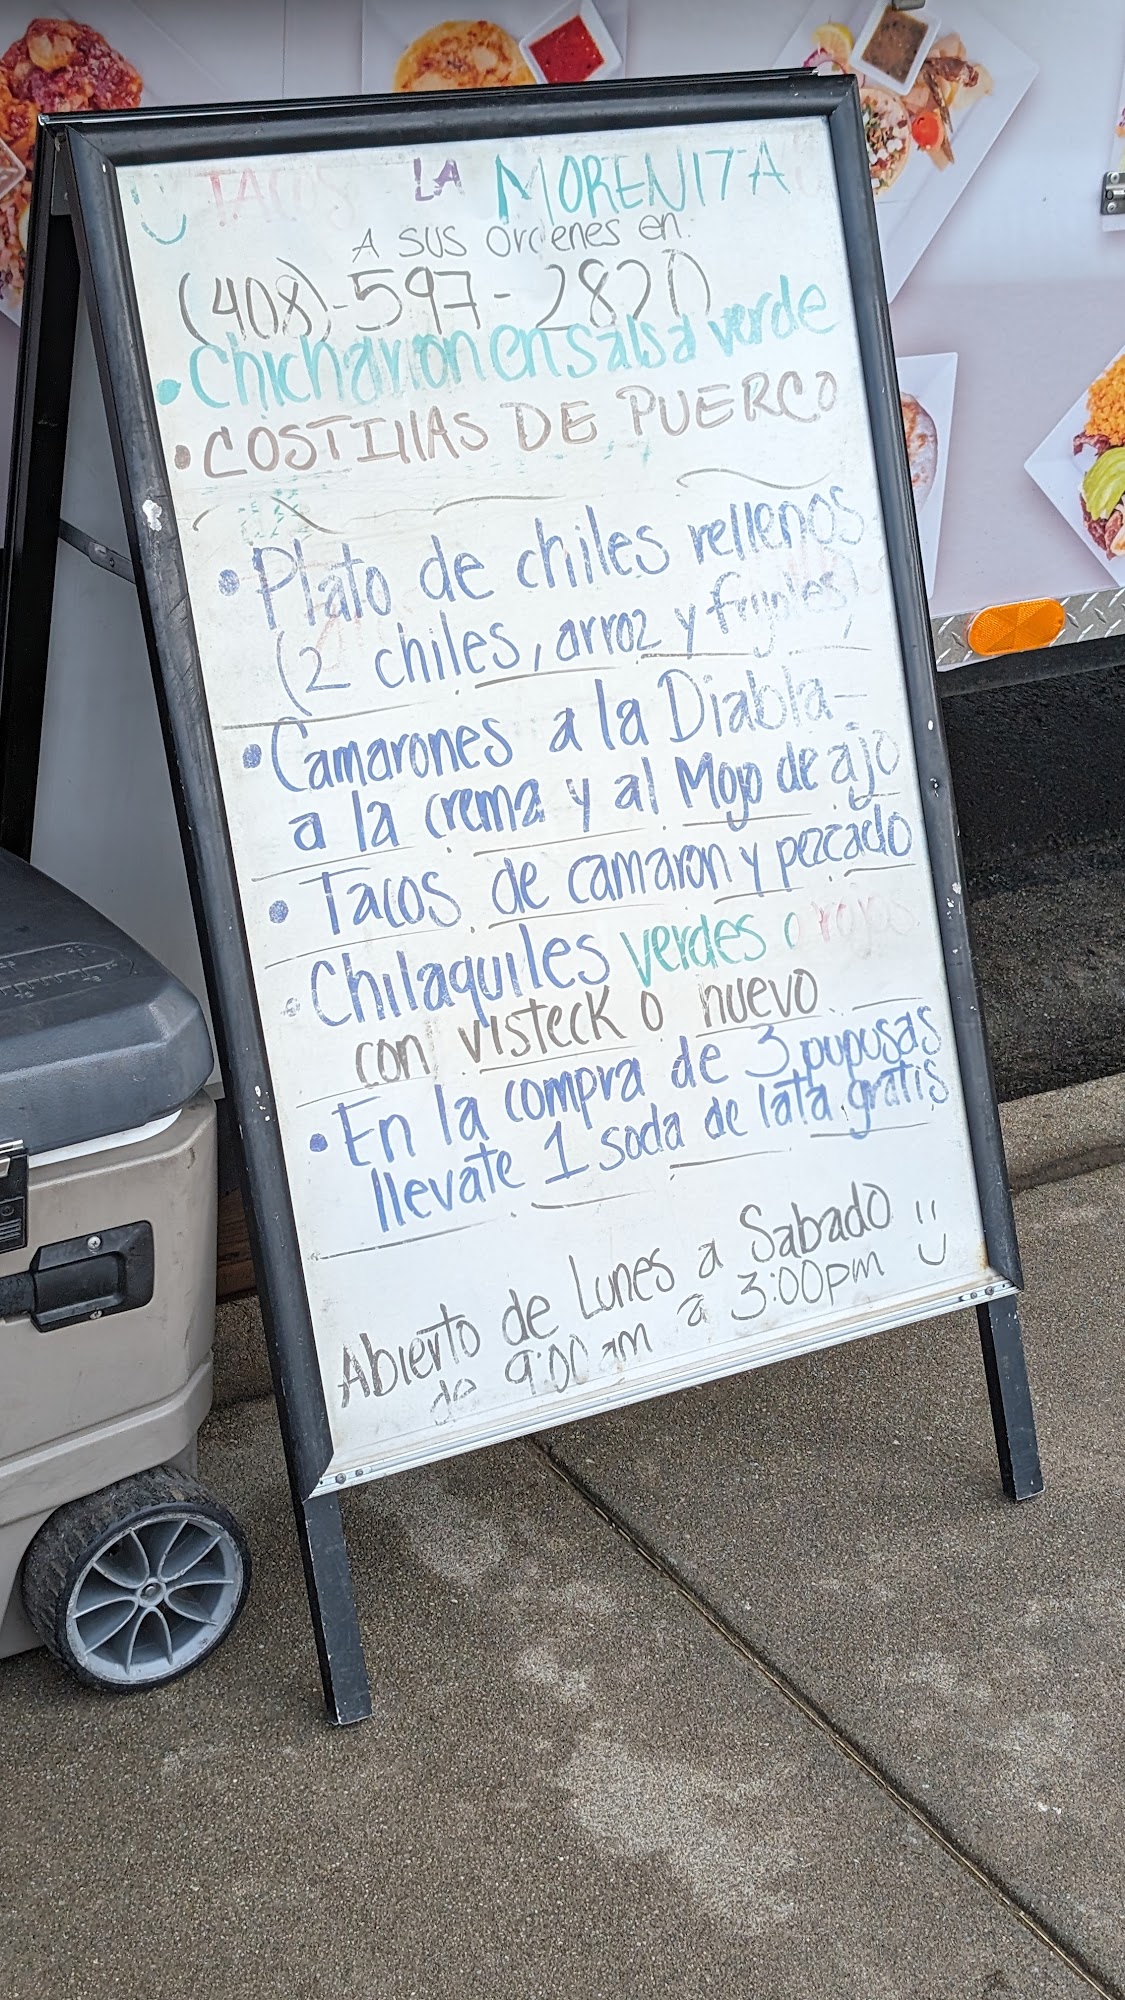 TACOS LA MORENITA
A SUS Ordenes en:
(408)-597-2820
• Chicharron en salsa verde
• COSTIllAS DE PUERCO
• Plato de chiles rellenos
(2 chiles, arroz y frijoles)
• Camarones a la Diabla-
a la crema y al Mojo de ajo
• Tacos de camaron y pezcado
• Chilaquiles verdes o rojos
con visteck o huevo
• En la compra de 3 pupusas
llevate 1 soda de lata gratis
Abierto de Lunes a Sabado
de 9:00 am a 3:00pm